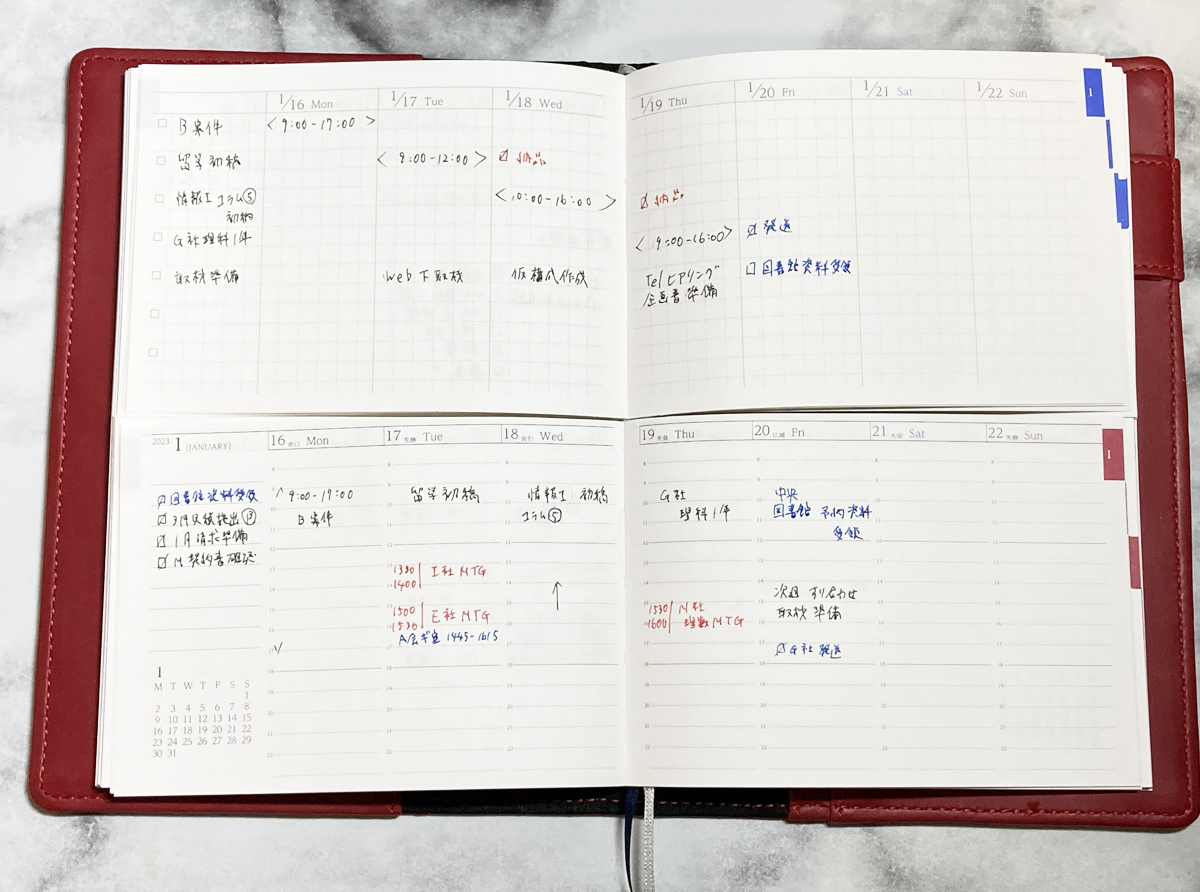 1/16 Mon
1/17 Tue
1/18 Wed
1/19 Thu
1/20 Fri
1/21 Sat
1/22 Sun
1
B案件
<9:00-17:00>
留学初稿
<9:00-12:00>
納品
情報I コラム⑤
初稿
<10:00-16:00>
納品
G社理科1件
<9:00-16:00>
発送
取材準備
web下取材
仮構成作成
Telヒアリング
企画書準備
図書館資料受領
2023/1 (JANUARY)
16 赤口 Mon
17 先勝 Tue
18 友引 Wed
19 先負 Thu
20 仏滅 Fri
21 大安 Sat
22 先勝 Sun
1
図書館資料受領
1月請求準備
M 契約書確認
9:00-17:00
B案件
留学初稿
1330 I社MTG
1400
1500 E社MTG
1530
1445-1615
情報I 初稿
コラム⑤
G社
理科1件
1530 N社
1600 理数MTG
中央
図書館 予約資料
受領
次週 すり合わせ
取材準備
G社発送
1
M T W T F S S
1
2 3 4 5 6 7 8
9 10 11 12 13 14 15
16 17 18 19 20 21 22
23 24 25 26 27 28 29
30 31